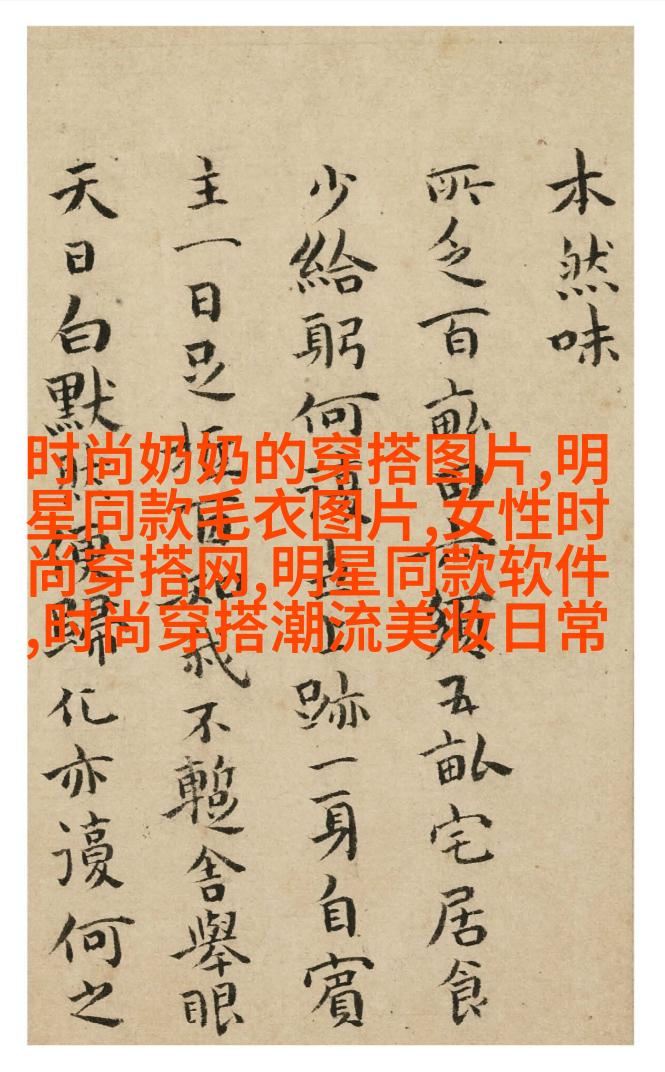 本然味
所乏百畝須五畝宅居食
少給躬何上跡一身自賓
主一日足我不暫舍舉眼
天日白默歸化亦謾何之
时尚奶奶的穿搭图片,明
星同款毛衣图片,女性时
尚穿搭网,明星同款软件
,时尚穿搭潮流美妆日常